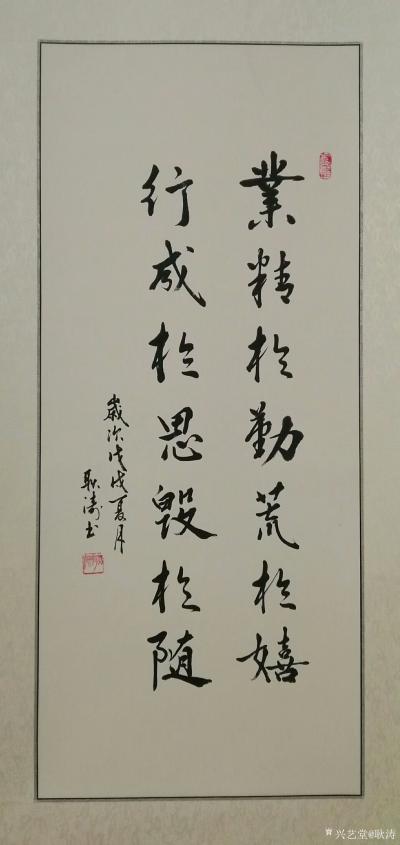 業精於勤荒於嬉
行成於思毁於随
歲次戊戌夏月
耿濤书
兴艺堂@耿涛